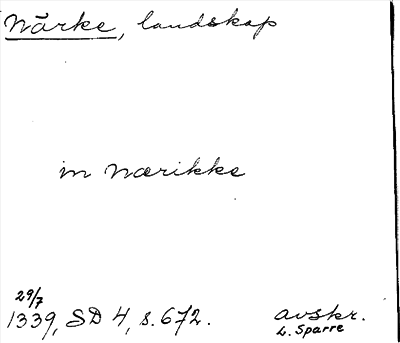 Närke, landskap
in Nærikke
29/7
1339, SD 4, s. 672. avskr.
L. Sparre